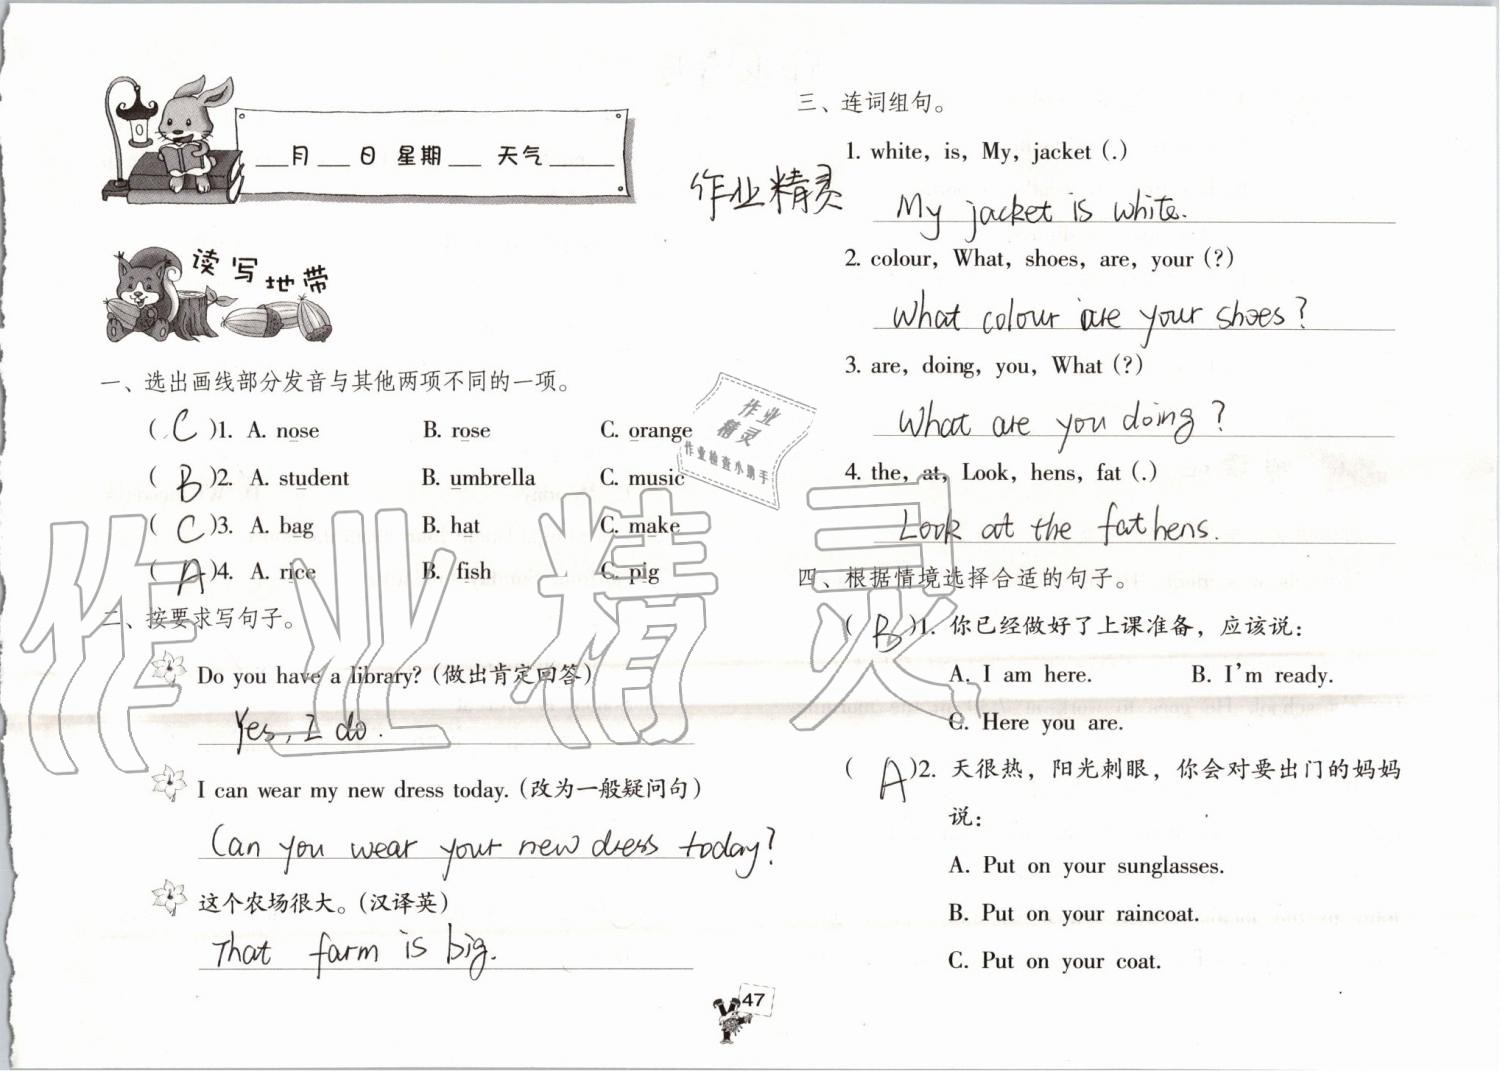 月 日 星期 天气
读写地带
一、选出画线部分发音与其他两项不同的一项。
( C )1. A. nose B. rose C. orange
( B )2. A. student B. umbrella C. music
( C )3. A. bag B. hat C. make
( A )4. A. rice B. fish C. pig
二、按要求写句子。
Do you have a library? (做出肯定回答)
Yes, I do.
I can wear my new dress today. (改为一般疑问句)
Can you wear your new dress today?
这个农场很大。(汉译英)
That farm is big.
三、连词组句。
1. white, is, My, jacket (.)
作业精灵
My jacket is white.
2. colour, What, shoes, are, your (?)
What colour are your shoes?
3. are, doing, you, What (?)
What are you doing?
作业
精灵
作业检查小助手
4. the, at, Look, hens, fat (.)
Look at the fat hens.
作业精灵
四、根据情境选择合适的句子。
( B )1. 你已经做好了上课准备，应该说：
A. I am here. B. I'm ready.
C. Here you are.
( A )2. 天很热，阳光刺眼，你会对要出门的妈妈
说：
A. Put on your sunglasses.
B. Put on your raincoat.
C. Put on your coat.
47